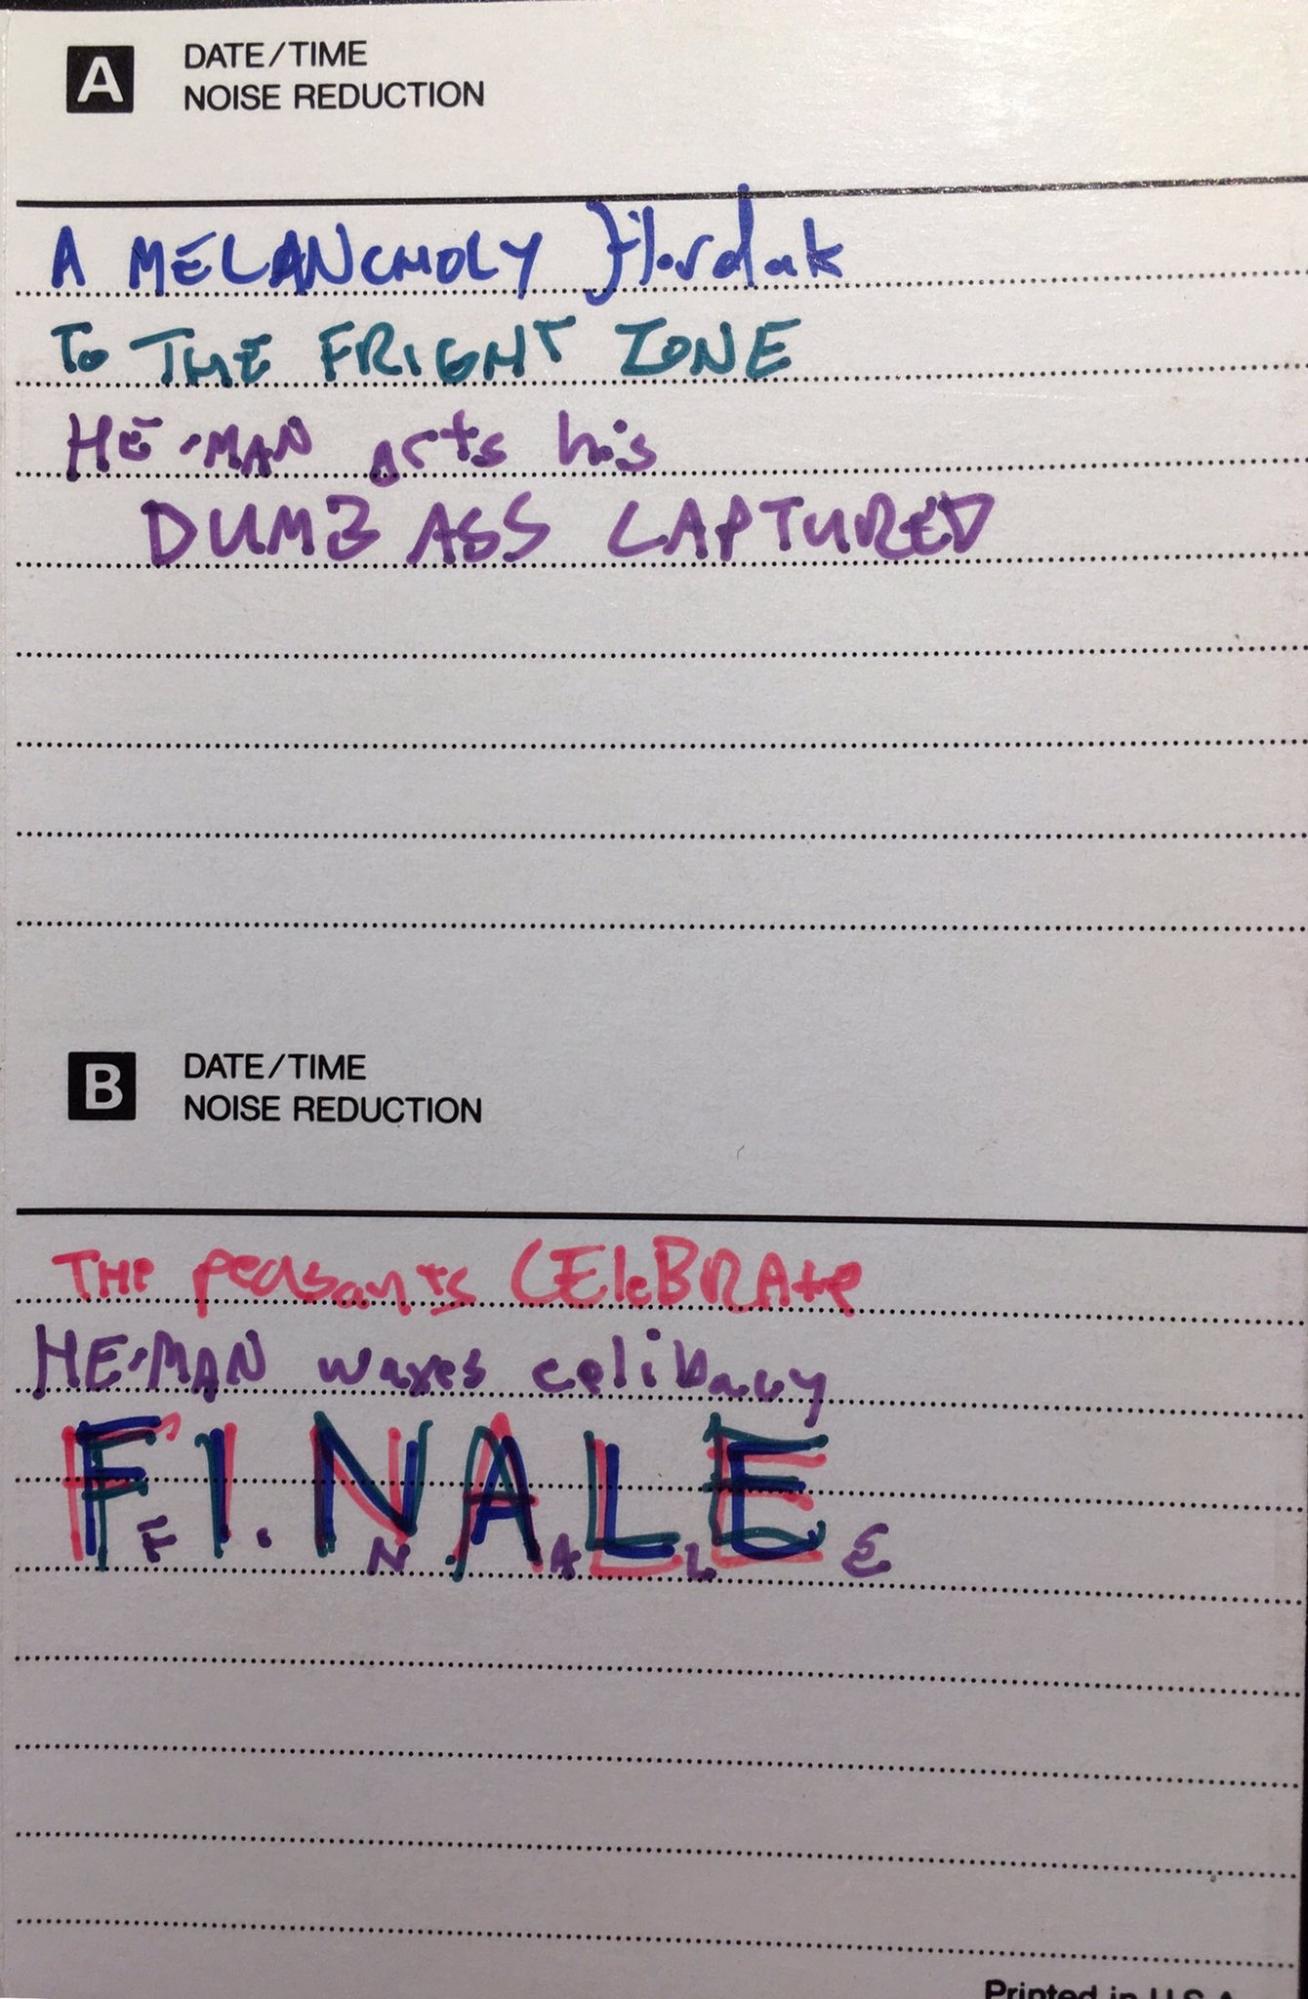 A DATE/TIME
NOISE REDUCTION
A MELANCHOLY Hordak
To THE FRIGHT ZONE
HE-MAN gets his
DUMB ASS CAPTURED
B DATE/TIME
NOISE REDUCTION
THe peasants CElEBRAte
HE-MAN waxes celibacy
FINALE
F I N A L E
Printed in U.S.A.